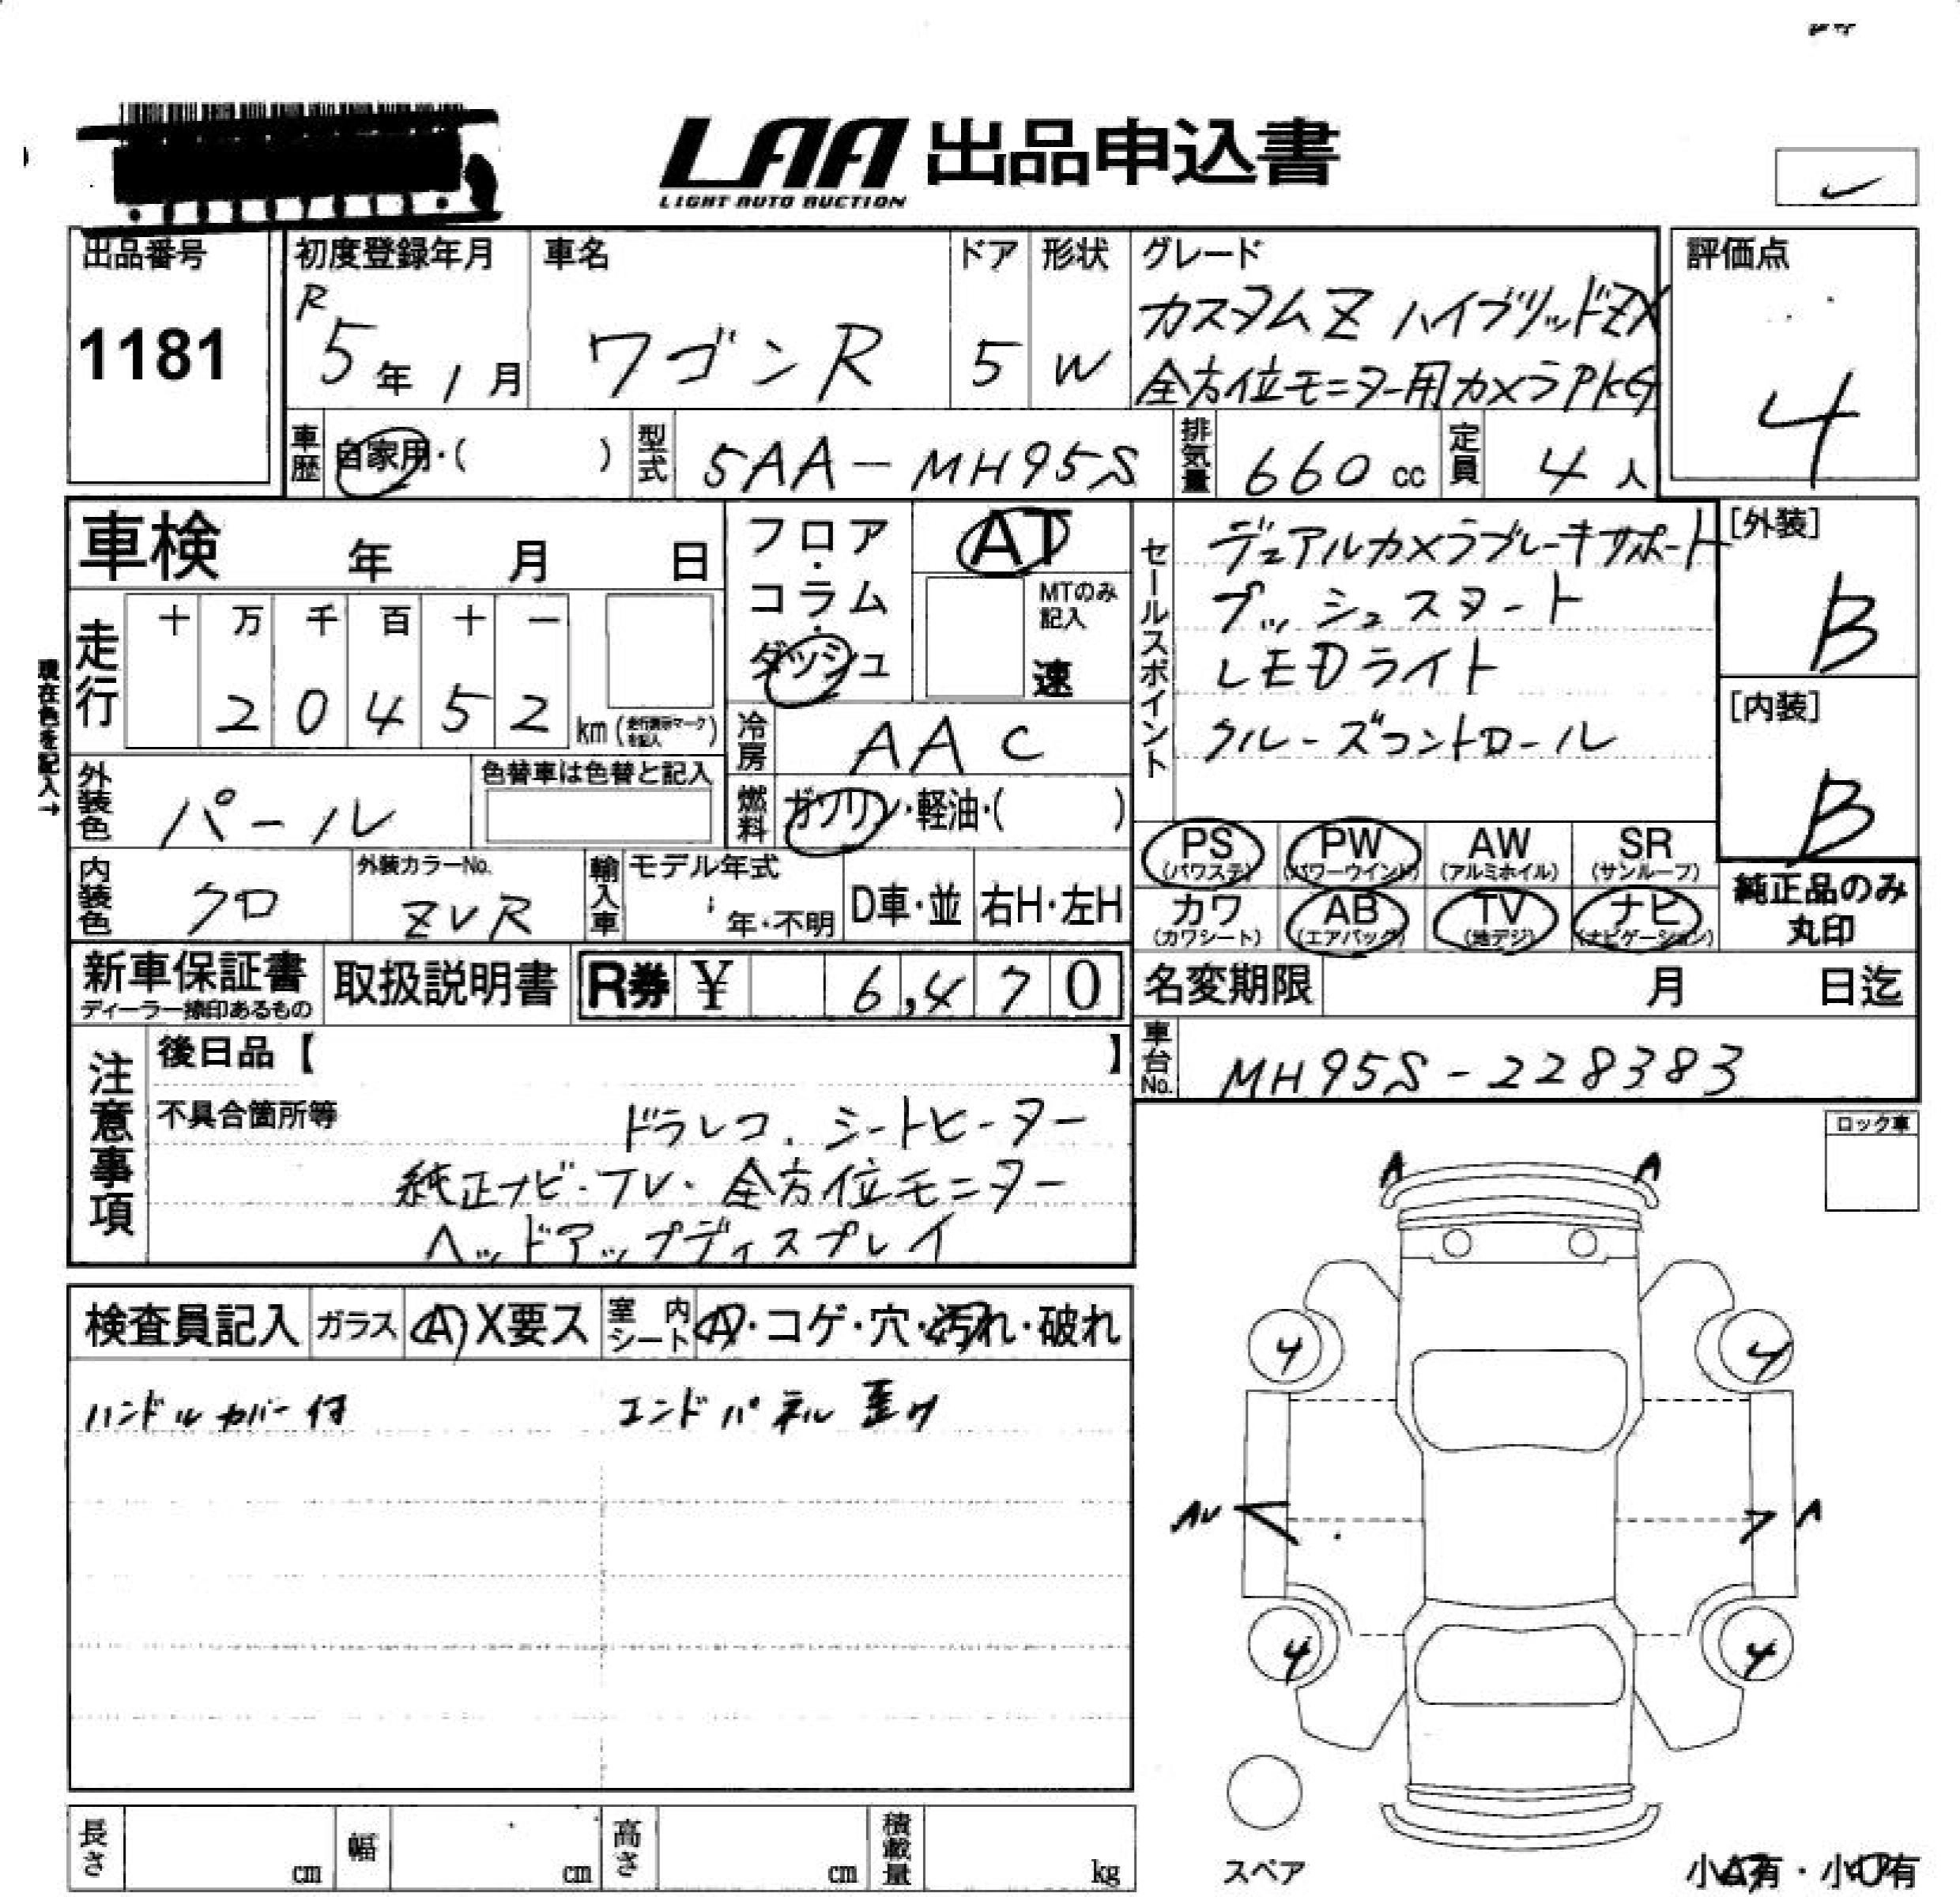 LAA 出品申込書
LIGHT AUTO AUCTION
出品番号
1181
初度登録年月
R
5年 1月
車名
ワゴンR
ドア
5
形状
W
グレード
カスタムZ ハイブリッドZX
全方位モニター用カメラPKG
評価点
4
車歴 自家用・( )
型式 5AA-MH95S
排気量 660 cc
定員 4人
車検 年 月 日
走行
十 万 千 百 十 一
2 0 4 5 2
km (走行表示マークを記入)
現在色を記入→
フロア・コラム・ダッシュ
AT
MTのみ記入
速
冷房 AAC
燃料 ガソリン・軽油・( )
外装色 パール
色替車は色替と記入
内装色 クロ
外装カラーNo.
ZVR
輸入車
モデル年式
年・不明
D車・並
右H・左H
セールスポイント
デュアルカメラブレーキサポート
プッシュスタート
LEDライト
クルーズコントロール
[外装]
B
[内装]
B
PS (パワステ) PW (パワーウインド) AW (アルミホイル) SR (サンルーフ)
カワ (カワシート) AB (エアバッグ) TV (地デジ) ナビ (ナビゲーション)
純正品のみ
丸印
新車保証書
ディーラー捺印あるもの
取扱説明書
R券 ¥ 6,470
名変期限 月 日迄
車台No. MH95S-228383
注意事項
後日品【 】
不具合箇所等
ドラレコ、シートヒーター
純正ナビ・TV・全方位モニター
ヘッドアップディスプレイ
ロック車
検査員記入 ガラス A X要ス 室内シート A・コゲ・穴・汚れ・破れ
ハンドルカバー付
エンドパネル歪ツ
A A
4 4
AU A
4 4
スペア
小A有・小U有
長さ cm
幅 cm
高さ cm
積載量 kg